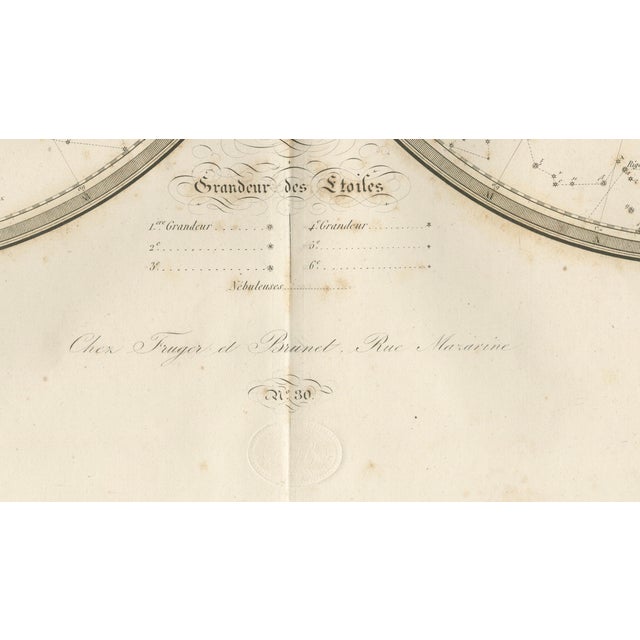 Grandeur des Etoiles
1.ere Grandeur 4.e Grandeur
2.e 5.e
3.e 6.e
Nébuleuses
Chez Fruger et Brunet, Rue Mazarine
N.o 30.